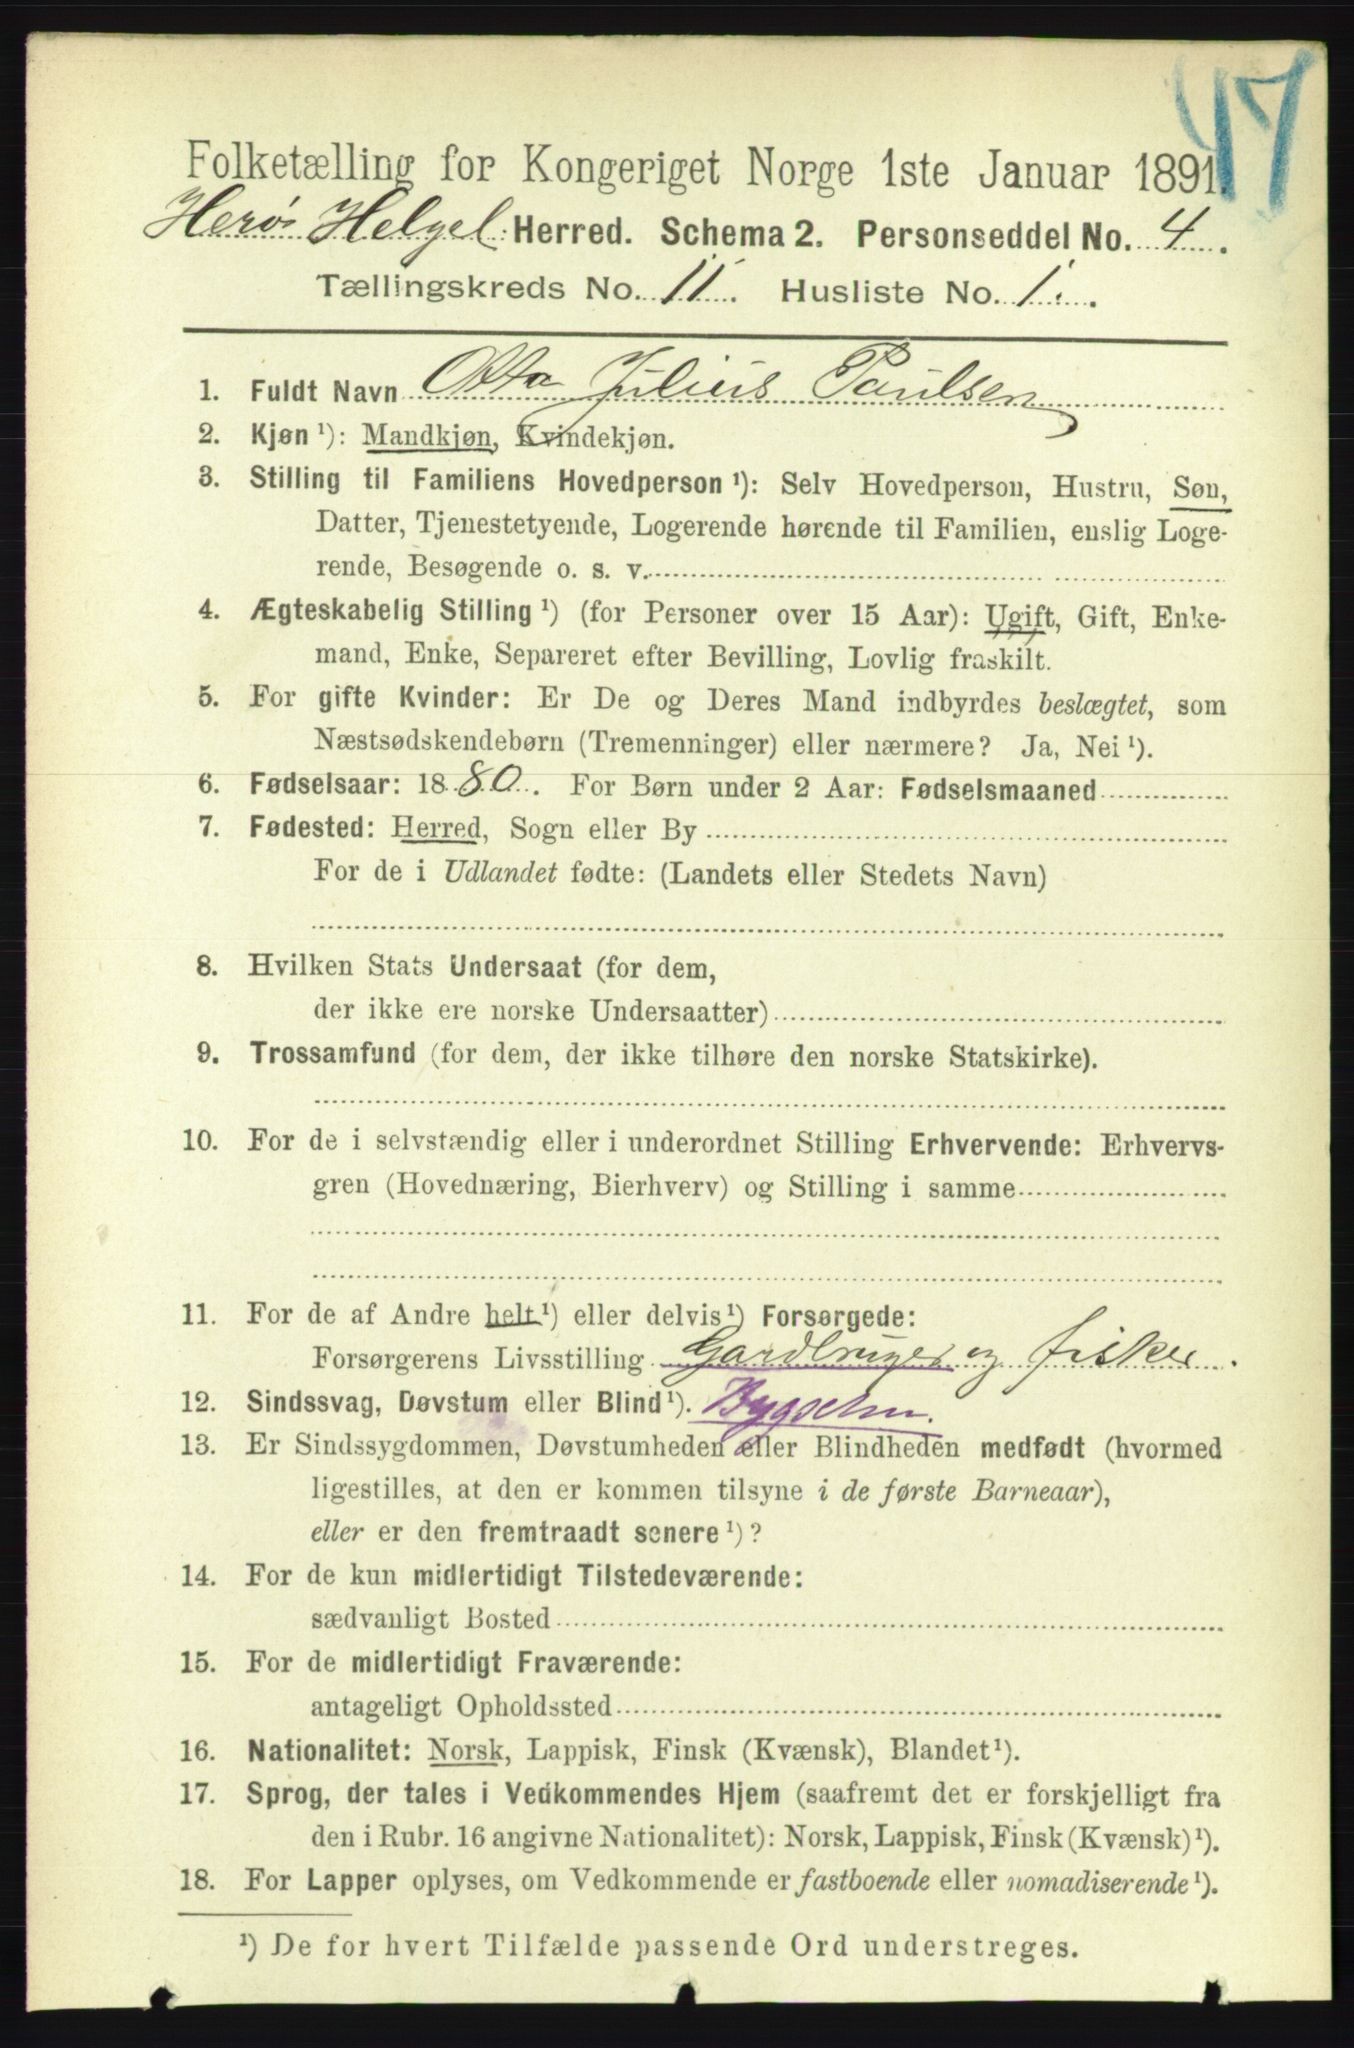 47
Folketælling for Kongeriget Norge 1ste Januar 1891.
Herøs Helgel. Herred. Schema 2. Personseddel No. 4.
Tællingskreds No. 11. Husliste No. 1.
1. Fuldt Navn Otto Julius Paulsen
2. Kjøn ¹): Mandkjøn, Kvindekjøn.
3. Stilling til Familiens Hovedperson ¹): Selv Hovedperson, Hustru, Søn,
Datter, Tjenestetyende, Logerende hørende til Familien, enslig Loge-
rende, Besøgende o. s. v.
4. Ægteskabelig Stilling ¹) (for Personer over 15 Aar): Ugift, Gift, Enke-
mand, Enke, Separeret efter Bevilling, Lovlig fraskilt.
5. For gifte Kvinder: Er De og Deres Mand indbyrdes beslægtet, som
Næstsødskendebørn (Tremenninger) eller nærmere? Ja, Nei ¹).
6. Fødselsaar: 1880. For Børn under 2 Aar: Fødselsmaaned
7. Fødested: Herred, Sogn eller By
For de i Udlandet fødte: (Landets eller Stedets Navn)
8. Hvilken Stats Undersaat (for dem,
der ikke ere norske Undersaatter)
9. Trossamfund (for dem, der ikke tilhøre den norske Statskirke).
10. For de i selvstændig eller i underordnet Stilling Erhvervende: Erhvervs-
gren (Hovednæring, Bierhverv) og Stilling i samme
11. For de af Andre helt ¹) eller delvis ¹) Forsørgede:
Forsørgerens Livsstilling Gardbruger og fisker.
12. Sindssvag, Døvstum eller Blind ¹). Bygselm.
13. Er Sindssygdommen, Døvstumheden eller Blindheden medfødt (hvormed
ligestilles, at den er kommen tilsyne i de første Barneaar),
eller er den fremtraadt senere ¹)?
14. For de kun midlertidigt Tilstedeværende:
sædvanligt Bosted
15. For de midlertidigt Fraværende:
antageligt Opholdssted
16. Nationalitet: Norsk, Lappisk, Finsk (Kvænsk), Blandet ¹).
17. Sprog, der tales i Vedkommendes Hjem (saafremt det er forskjelligt fra
den i Rubr. 16 angivne Nationalitet): Norsk, Lappisk, Finsk (Kvænsk) ¹).
18. For Lapper oplyses, om Vedkommende er fastboende eller nomadiserende ¹).
¹) De for hvert Tilfælde passende Ord understreges.